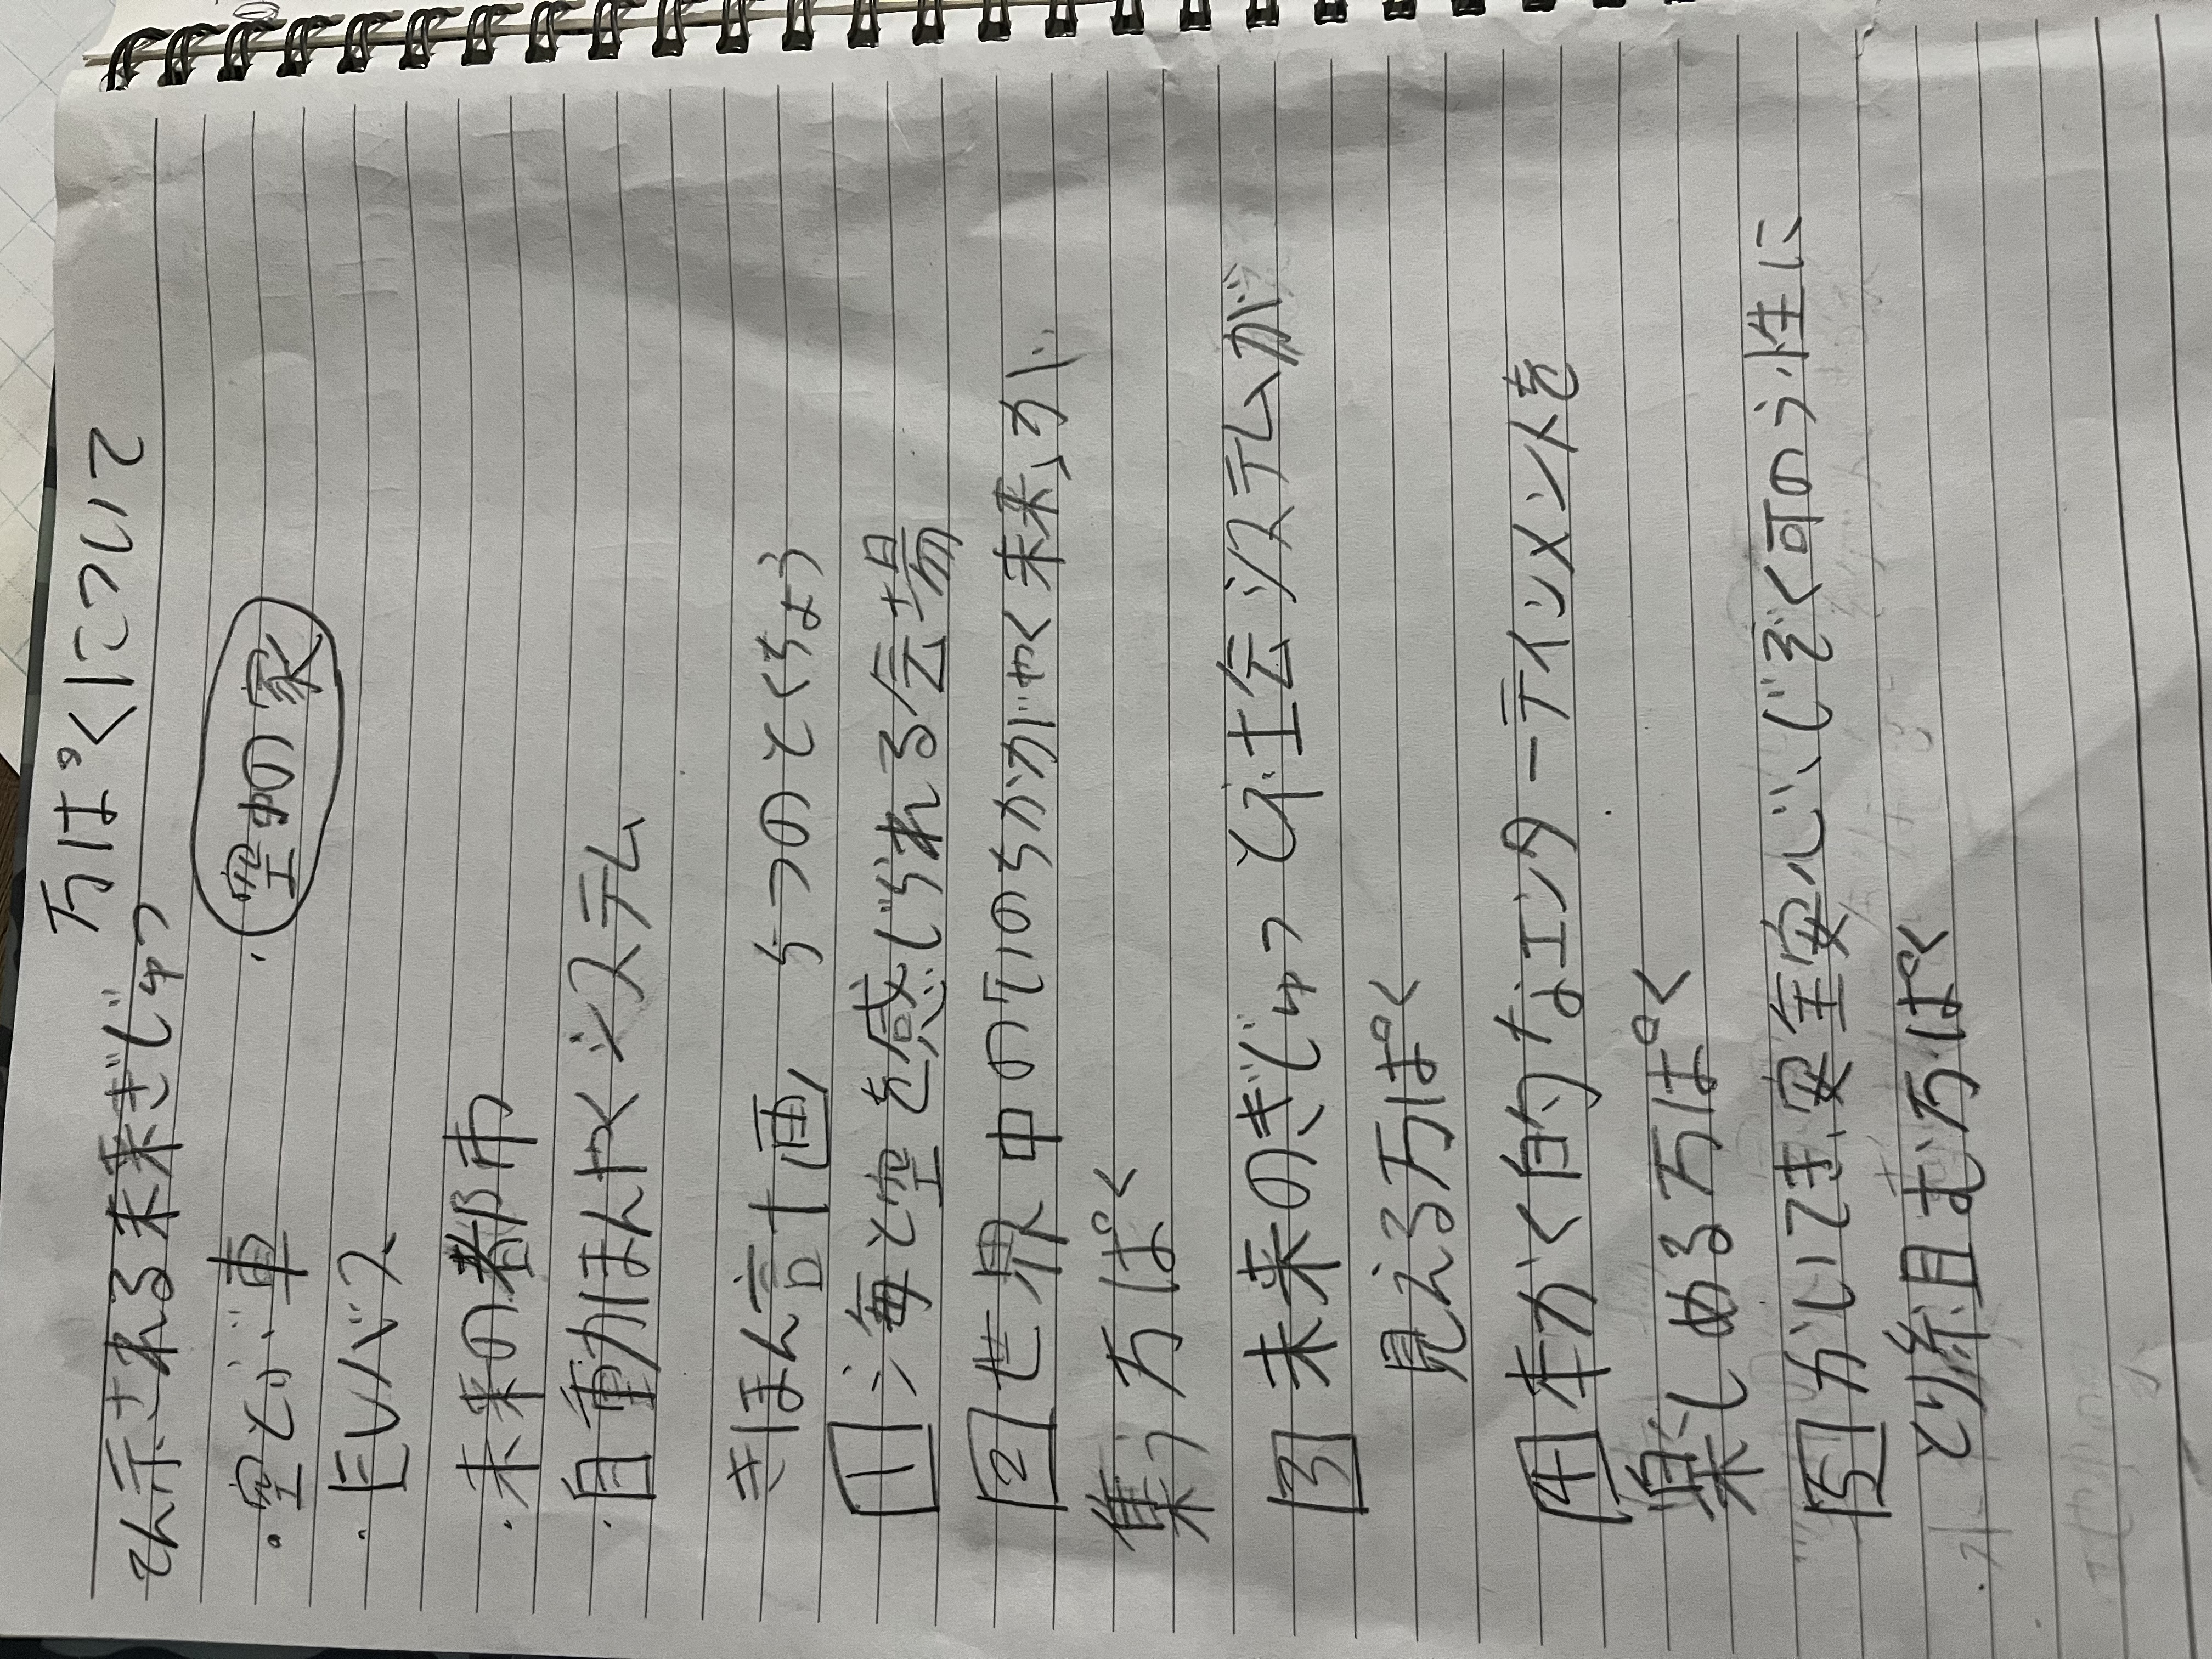 万ぱくについて
てん示される未来ぎじゅつ
・空とぶ車 ・空中の家
・EVバス
・未来の都市
・自動ほんやくシステム
きほん計画 5つのとくちょう
1 海と空を感じられる会場
2 世界中の「いのちかがやく未来」が
集う万ぱく
3 未来のぎじゅつと社会システムが
見える万ぱく
4 本かく的なエンターテインメントを
楽しめる万ぱく
5 かいてき、安全安心、じぞく可のう性に
とり組む万ぱく